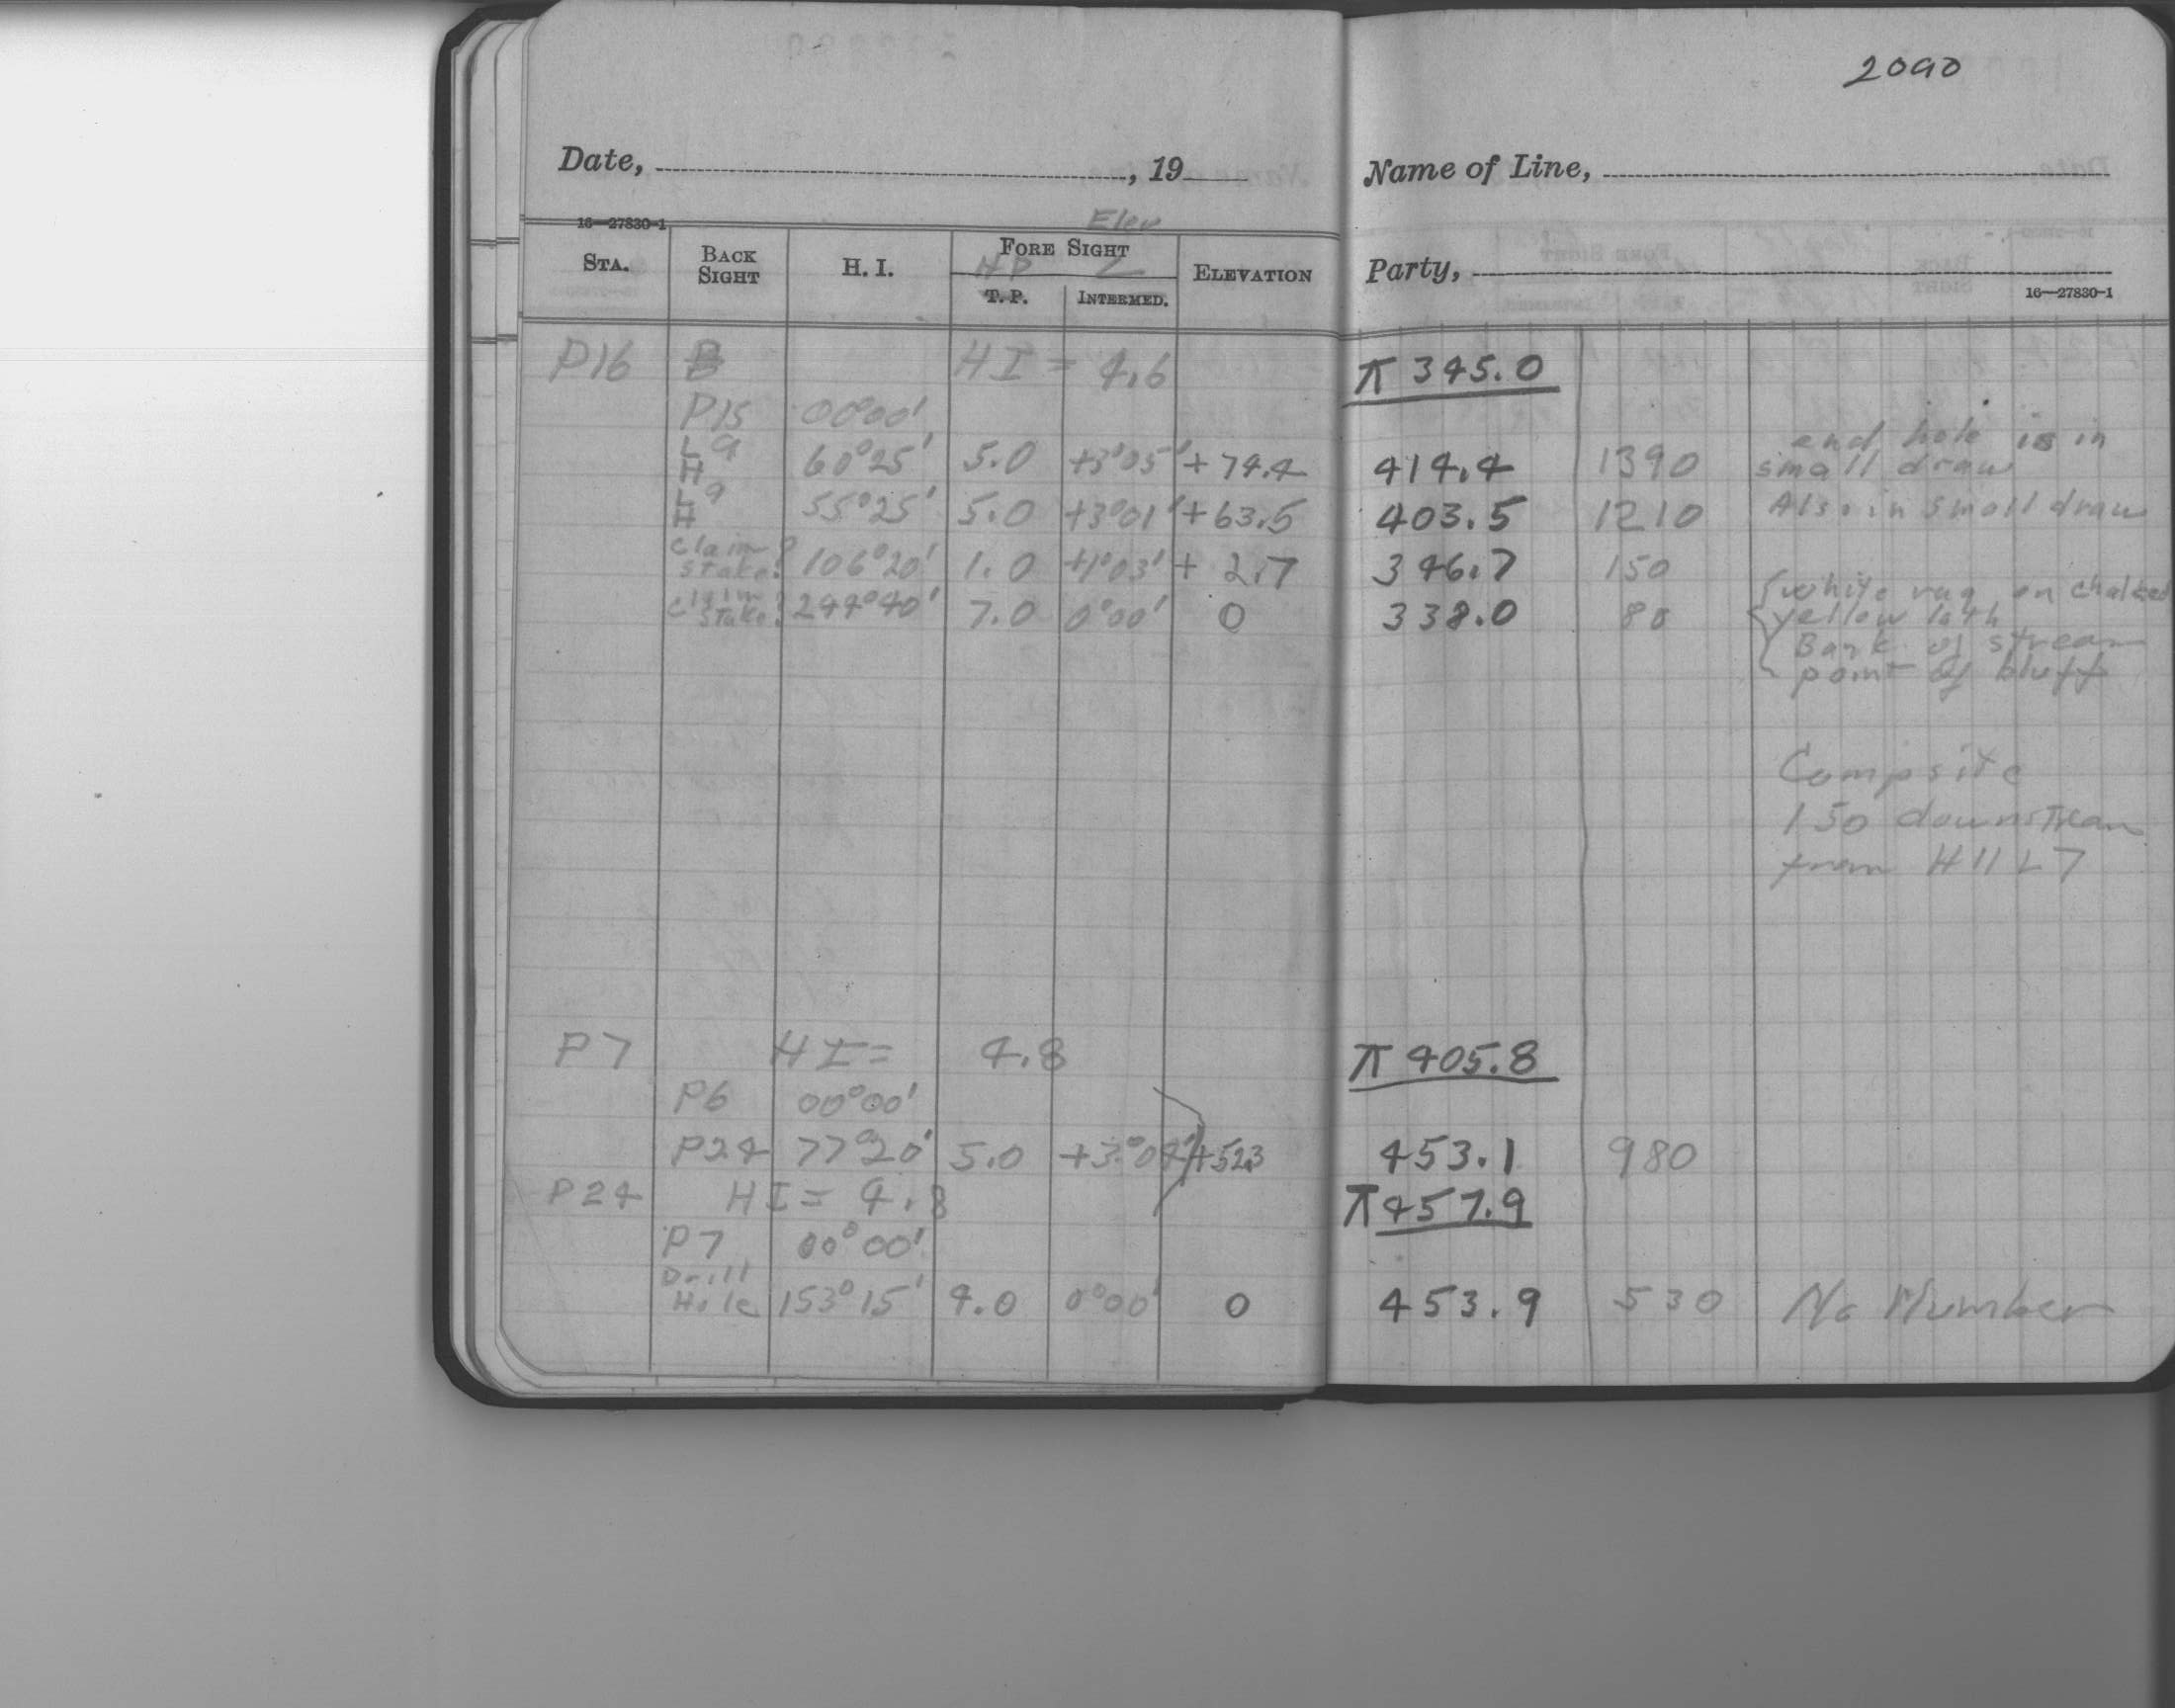 2090
Date, , 19
Name of Line,
16—27830-1
Elev
STA.
BACK SIGHT
H. I.
FORE SIGHT
T. P.
INTERMED.
ELEVATION
Party,
16—27830-1
P16 B HI = 4.6 π 345.0
P15 00°00'
L9 H 60°25' 5.0 +3°05' +74.4 414.4 1390 end hole is in
small draw
L9 H 55°25' 5.0 +3°01' +63.5 403.5 1210 Also in small draw
Claim Stake? 106°20' 1.0 +1°03' + 2.7 346.7 150
Claim Stake? 244°40' 7.0 0°00' 0 338.0 80
{white rag on chalked
yellow lath
{Bank of stream
point of bluff
Compsite
150 downstream
from H11 L7
P7 HI = 4.8 π 405.8
P6 00°00'
P24 77°20' 5.0 +3°04' +52.3 453.1 980
P24 HI = 4.8 π 457.9
P7 00°00'
Drill Hole 153°15' 4.0 0°00' 0 453.9 530 No Number